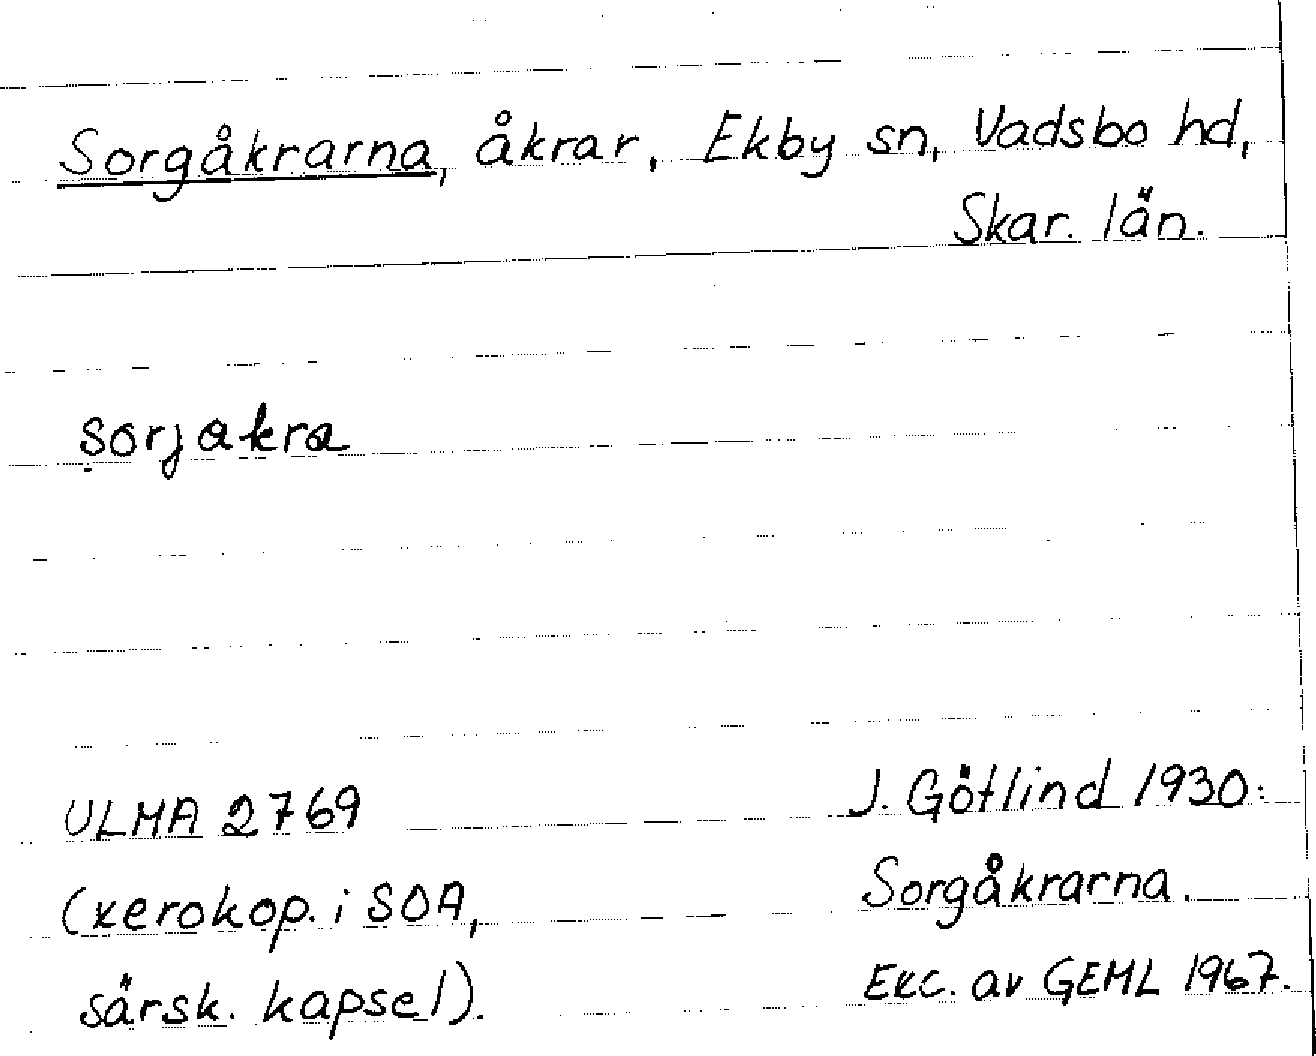 Sorgåkrarna, åkrar, Ekby sn, Vadsbo hd,
Skar. län.
sorjakra
ULMA 2769
(xerokop. i SOA,
särsk. kapsel).
J. Götlind 1930:
Sorgåkrarna.
Exc. av GEML 1967.